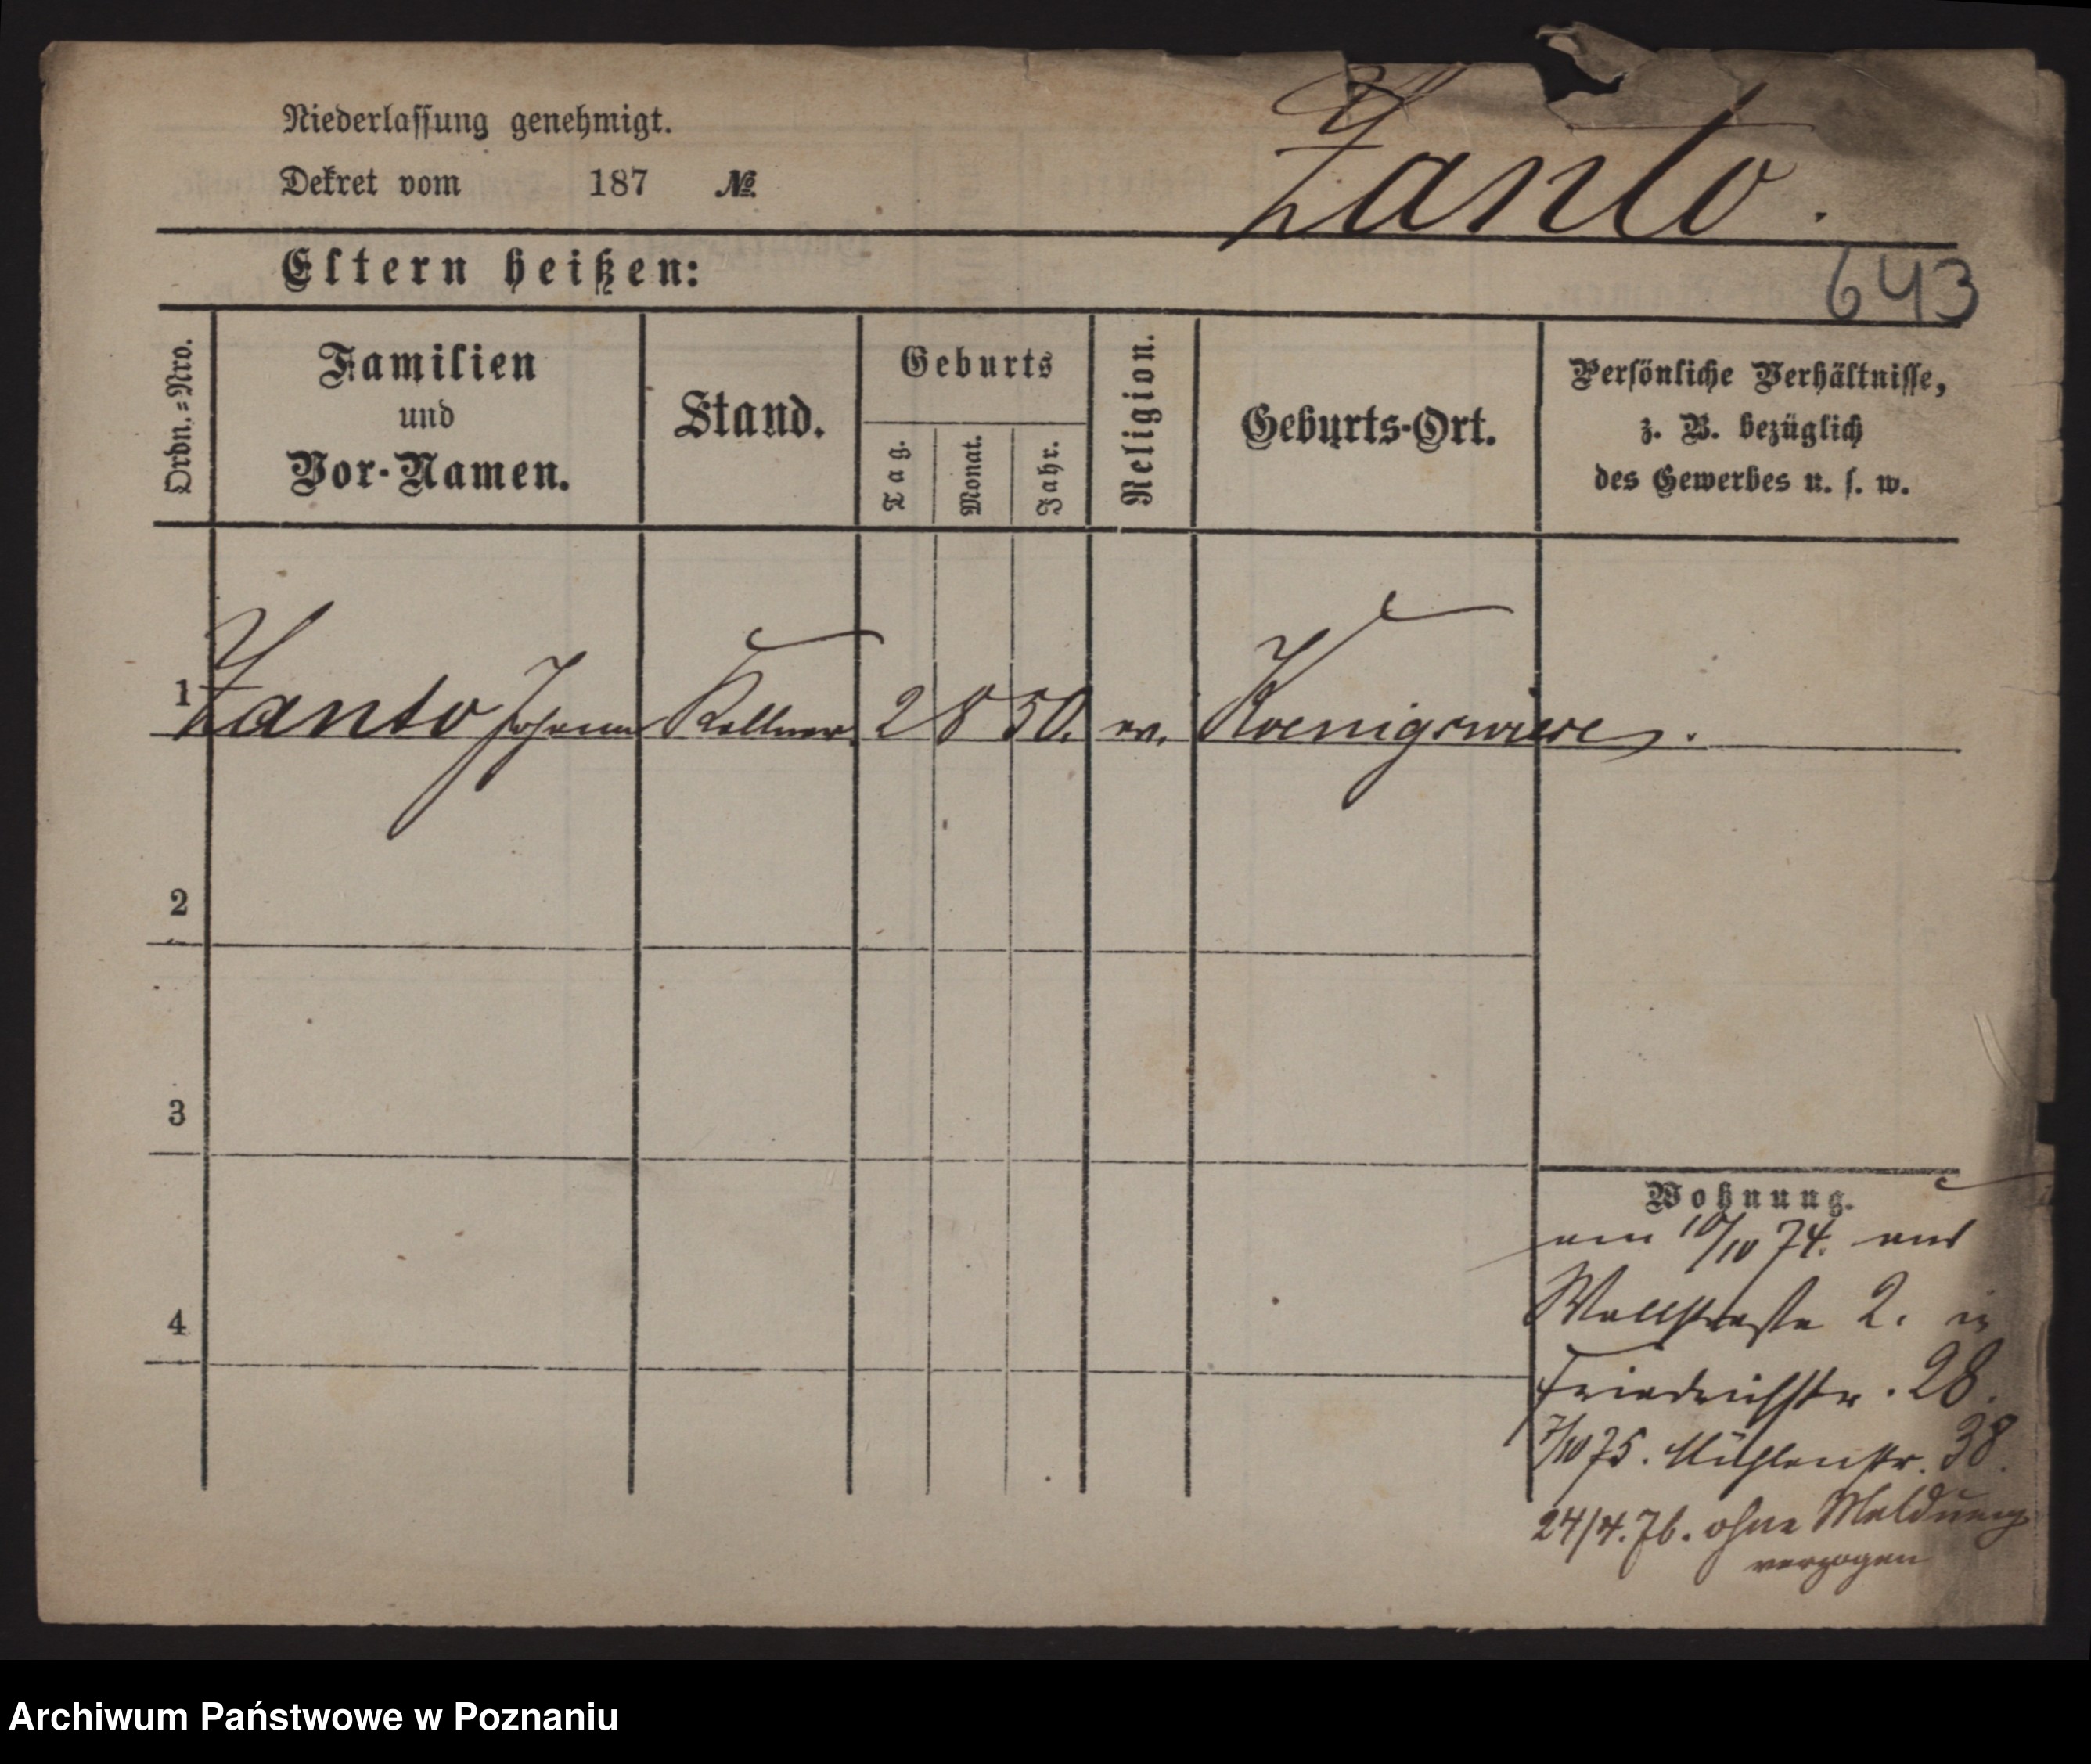 Niederlassung genehmigt.
Dekret vom 187 №
Zanto.
Eltern heißen:
643
Ordn.=Nro.
Familien
und
Vor-Namen.
Stand.
Geburts
Tag.
Monat.
Jahr.
Religion.
Geburts-Ort.
Persönliche Verhältnisse,
z. B. bezüglich
des Gewerbes u. s. w.
1 Zanto Johann Kellner 2 8 50. ev. Koenigswiese.
2
3
4
Wohnung.
am 10/10 74. aus
Wallstraße 2. in
Friedrichstr. 28.
7/10 75. Mühlenstr. 38.
24/4. 76. ohne Meldung
verzogen
Archiwum Państwowe w Poznaniu